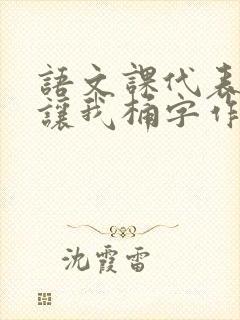 語文課代表
讓我桶字作
沈霞雷